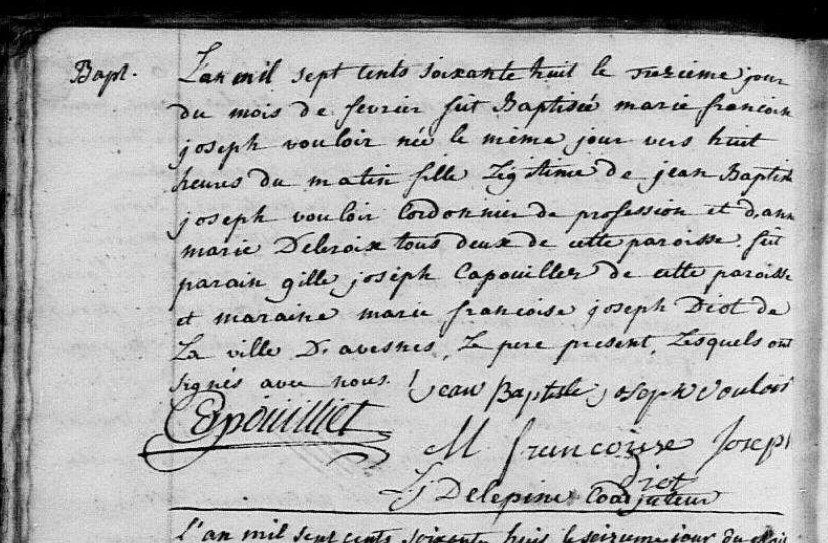 Bapt.
L'an mil sept cents soixante huit le treizieme jour
du mois de fevrier fut Baptisée marie francois
joseph vouloir née le même jour vers huit
heures du matin fille Legitime de jean Baptist
joseph vouloir Cordonnier de profession et d'ann
marie Delcroix tous deux de cette paroisse. fut
parain gille joseph Capouillez de cette paroisse
et maraine marie francoise joseph Diot de
La ville D'avesnes, Le pere present, Lesquels ont
signés avec nous. Jean Baptiste joseph Vouloir
Capouilliet
M francoisse Josep
Diot
Delepine Coadjuteur
L'an mil sept cents soixante huit le seizieme jour du